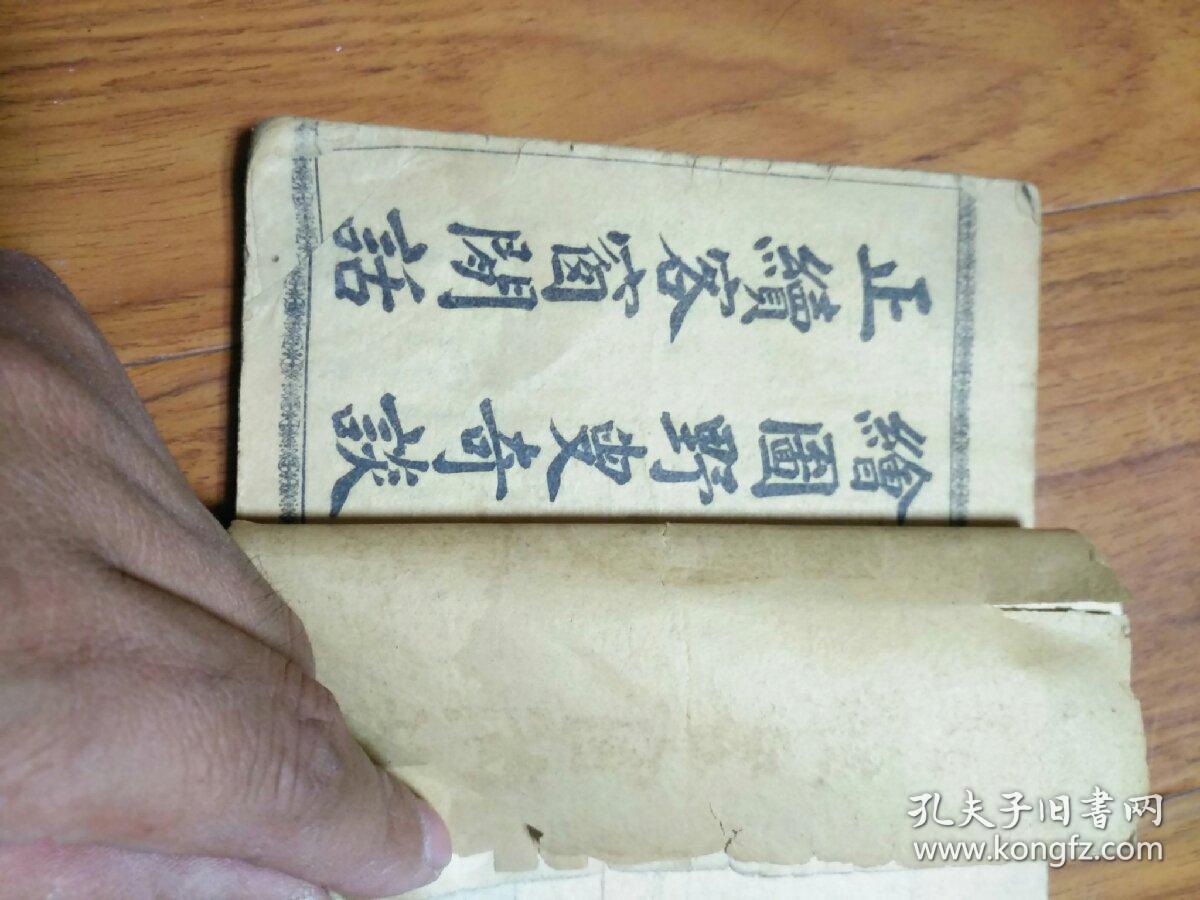 繪圖野叟奇談
正續客窗閒話
孔夫子旧书网
www.kongfz.com